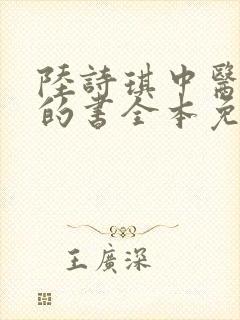 陸詩琪中醫
的書全本免
王廣深